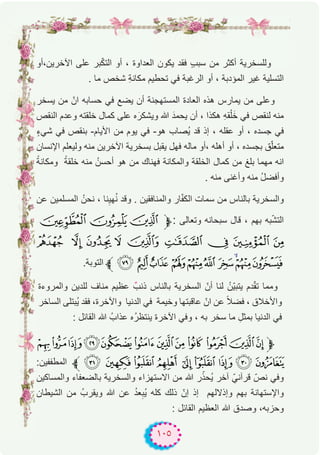 وللسخرية أكثر من سببٍ فقد يكون العداوة ، أو التكّبر على الآخرين،أو
التسلية غير المؤدبة ، أو الرغبة في تحطيم مكانةِ شخص ما .
وعلى من يمارس هذه العادة المستهجنة أن يضع في حسابه انّ من يسخر
منه لنقص في خَلْقِه هكذا ، أن يحمدَ الله ويشكرَه على كمال خلقته وعدم النقص
في جسده ، أو عقله ، إذ قد يُصاب هو- في يوم من الأيام- بنقص في شيءٍ
متعلّق بجسده ، أو أهله ،أو ماله فهل يقبل بسخرية الآخرين منه وليعلم الإنسان
انه مهما بلغ من كمال الخلقة والمكانة فهناك من هو أحسنُ منه خلقةً ومكانةً
وأفضلُ منه وأغنى منه .
والسخرية بالناس من سمات الكفّار والمنافقين . وقد نُهينا ، نحنُ المسلمين عن
التشّبه بهم ، قال سبحانه وتعالى : ﴿ ٱلَّذِينَ يَلْمِزُونَ ٱلْمُطَّوِّعِينَ
مِنَ ٱلْمُؤْمِنِينَ فِي ٱلصَّدَقَٰتِ وَٱلَّذِينَ لَا يَجِدُونَ إِلَّا جُهْدَهُمْ
فَيَسْخَرُونَ مِنْهُمْ سَخِرَ ٱللَّهُ مِنْهُمْ وَلَهُمْ عَذَابٌ أَلِيمٌ ﴿٧٩﴾ ﴾ التوبة.
ومما تقّدم يتبيّنُ لنا أنّ السخرية بالناس ذنبٌ عظيم منافٍ للدين والمروءة
والأخلاق ، فضلاً عن انّ عاقبتها وخيمة في الدنيا والآخرة، فقد يُبتلى الساخر
في الدنيا بمثل ما سخر به ، وفي الآخرة ينتظرُه عذابُ الله القائل :
﴿ إِنَّ ٱلَّذِينَ أَجْرَمُواْ كَانُواْ مِنَ ٱلَّذِينَ ءَامَنُواْ يَضْحَكُونَ ﴿٢٩﴾ وَإِذَا مَرُّواْ بِهِمْ
يَتَغَامَزُونَ ﴿٣٠﴾ وَإِذَا ٱنقَلَبُوٓاْ إِلَىٰٓ أَهْلِهِمُ ٱنقَلَبُواْ فَكِهِينَ ﴿٣١﴾ ﴾ المطففين:
وفي نصّ قرآنيّ آخر يُحذّر الله من الاستهزاء والسخرية بالضعفاء والمساكين
والإستهانة بهم وإذلالهم إذ إنّ ذلك كله يُبعدُ عن الله ويقربُ من الشيطان
وحزبه، وصدق الله العظيم القائل :
١٠٥